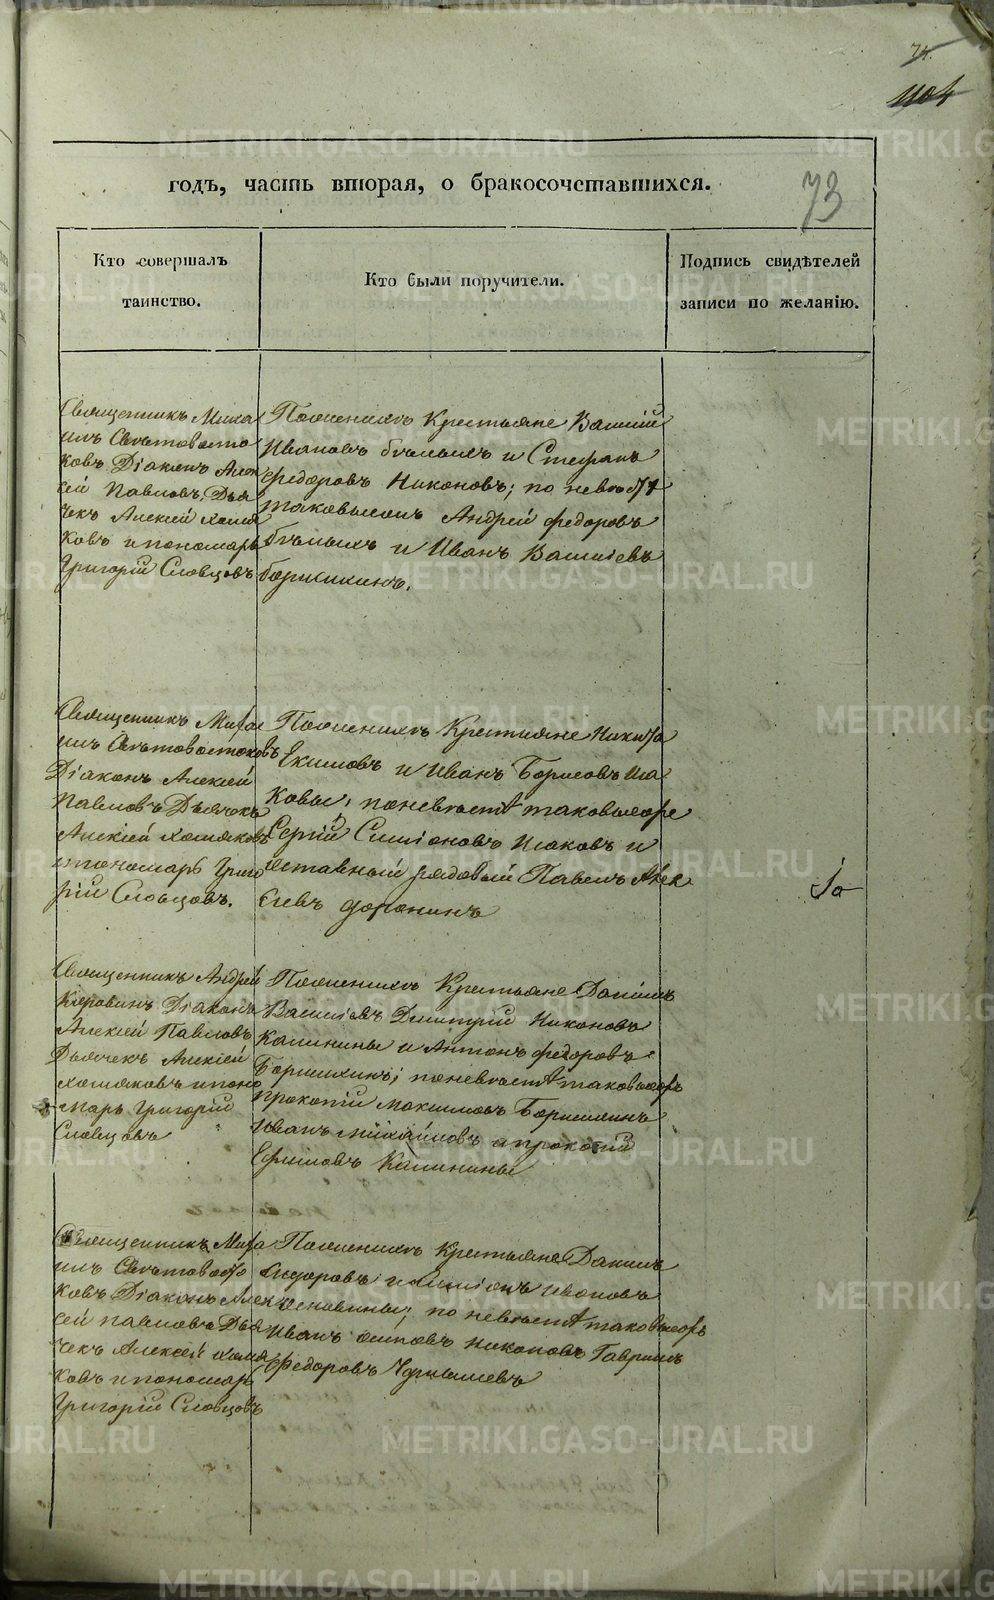 74.
1104
73
годъ, часть вторая, о бракосочетавшихся.
Кто совершалъ
таинство.
Кто были поручители.
Подпись свидѣтелей
записи по желанію.
Священникъ Миха
илъ Святовосто
ковъ Діаконъ Алек
сей Павловъ, Дья
чекъ Алексей Хомя
ковъ и пономарь
Григорій Словцовъ
Поженихъ Крестьяне Василій
Ивановъ Бѣлыхъ и Стефанъ
Федоровъ Никоновъ; по невѣстѣ
таковыежъ Андрей Федоровъ
Бѣлыхъ и Иванъ Василіевъ
Священникъ Миха
илъ Святовостоковъ
Діаконъ Алексей
Павловъ Дьячокъ
Алексій Хомяковъ
и пономарь Григо
рій Словцовъ.
Поженихъ Крестьяне Никита
Екимовъ и Иванъ Борисовъ Иса
ковы, поневѣстѣ таковыеже
Сергій Симіоновъ Исаковъ и
отставный рядовый Павелъ Алек
сѣевъ Доронинъ
Священникъ Андрей
Діаконъ
Алексей Павловъ
Дьячекъ Алексей
Хомяковъ и поно
марь Григорій
Словцовъ
Поженихъ Крестьяне Данилъ
Василіевъ Дмитрій Никоновъ
Калинины и Антонъ Федоровъ
поневѣстѣ таковыежъ
Прокопій Максимовъ
Иванъ Михайловъ и Прокопій
Ефимовъ Калинины
Священникъ Миха
илъ Святовосто
ковъ Діаконъ Алек
сей Павловъ Дья
чекъ Алексей Хомя
ковъ и пономарь
Григорій Словцовъ
Поженихъ Крестьяне Данилъ
Сидоровъ и Симіонъ Ивановъ
по невѣстѣ таковыежъ
Иванъ Осиповъ Никоновъ Гаврилъ
Федоровъ Чернышевъ
METRIKI.GASO-URAL.RU